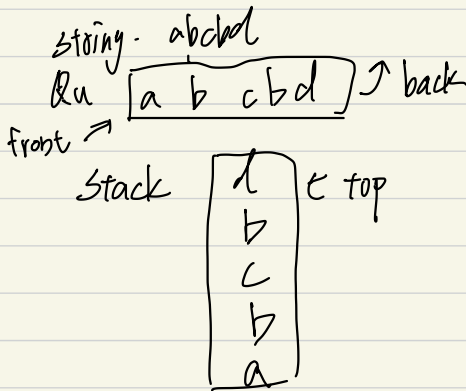 string. abcbd
Qu a b c b d back
front
stack d t top
b
c
b
a